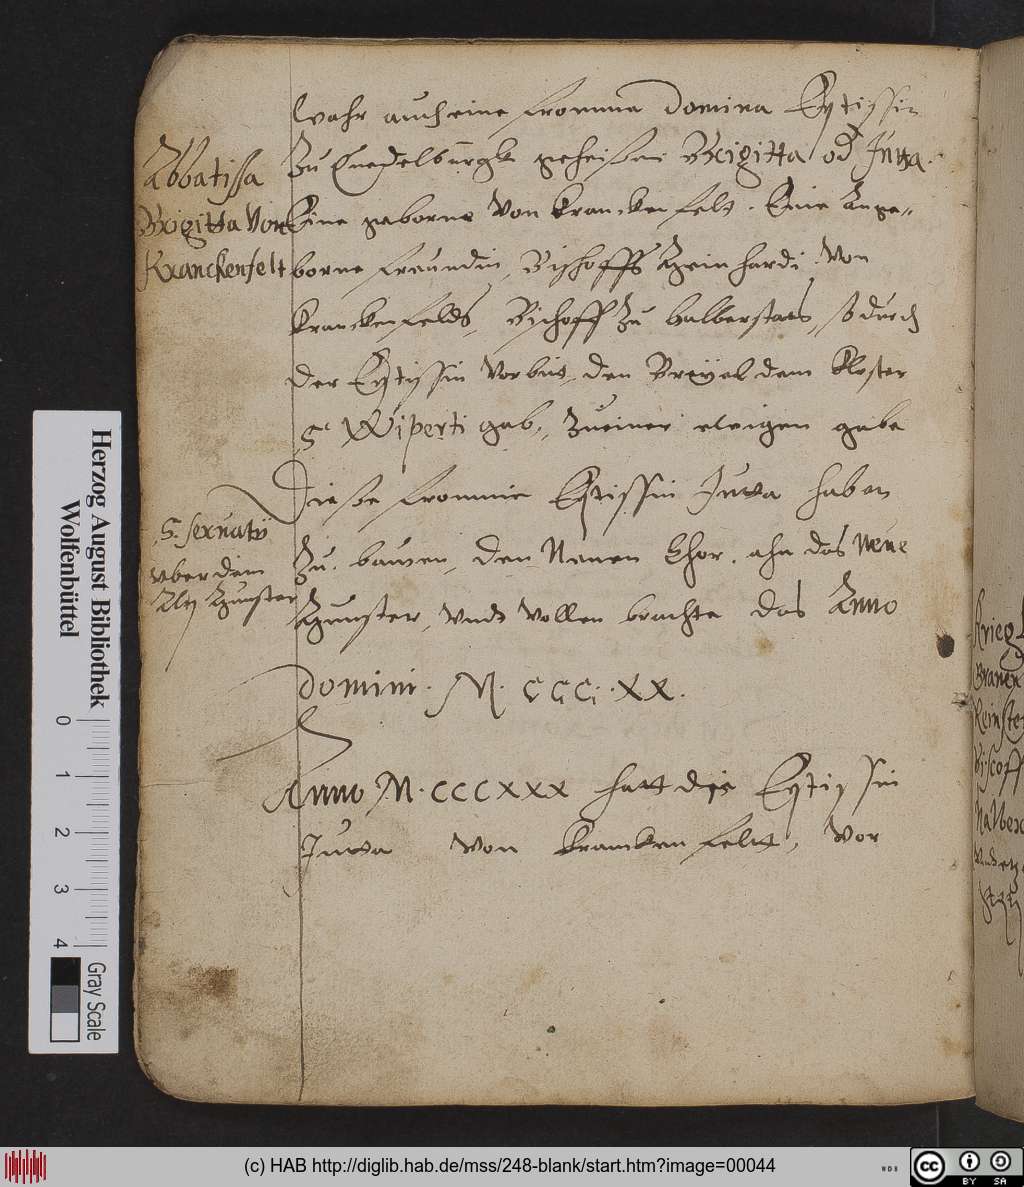 Wahr auch eine fromme Domina Eptissin
Abbatissa
Brigitta Von
Kranckenfelt
Zu Quedelburgk geheißen Brigitta od Jutta.
Eine geborne Von kranckenfelt. Eine Ange-
borne freundin, Bischoffs Meinhardi Von
kranckenfelds, Bischoff zu halberstat, so durch
der Eptissin Vorbit, den den dem Kloster
S. Wiperti gab, zu einer ewigen gabe
S. servatii
vber dem
Alten Munster
Diese fromme Eptissin Jutta haben
Zu bauwen, den Neuen Chor, ahn das Neue
Munster, vnd vollen brachte das Anno
Domini. M. CCC. XX.
Anno M. CCCXXX hatt die Eptissin
Jutta Von kranckenfelt, Vor
Krieg
Reinste
Halber
Herzog August Bibliothek
Wolfenbüttel
0 1 2 3 4
Gray Scale
(c) HAB http://diglib.hab.de/mss/248-blank/start.htm?image=00044
WDB
cc BY SA